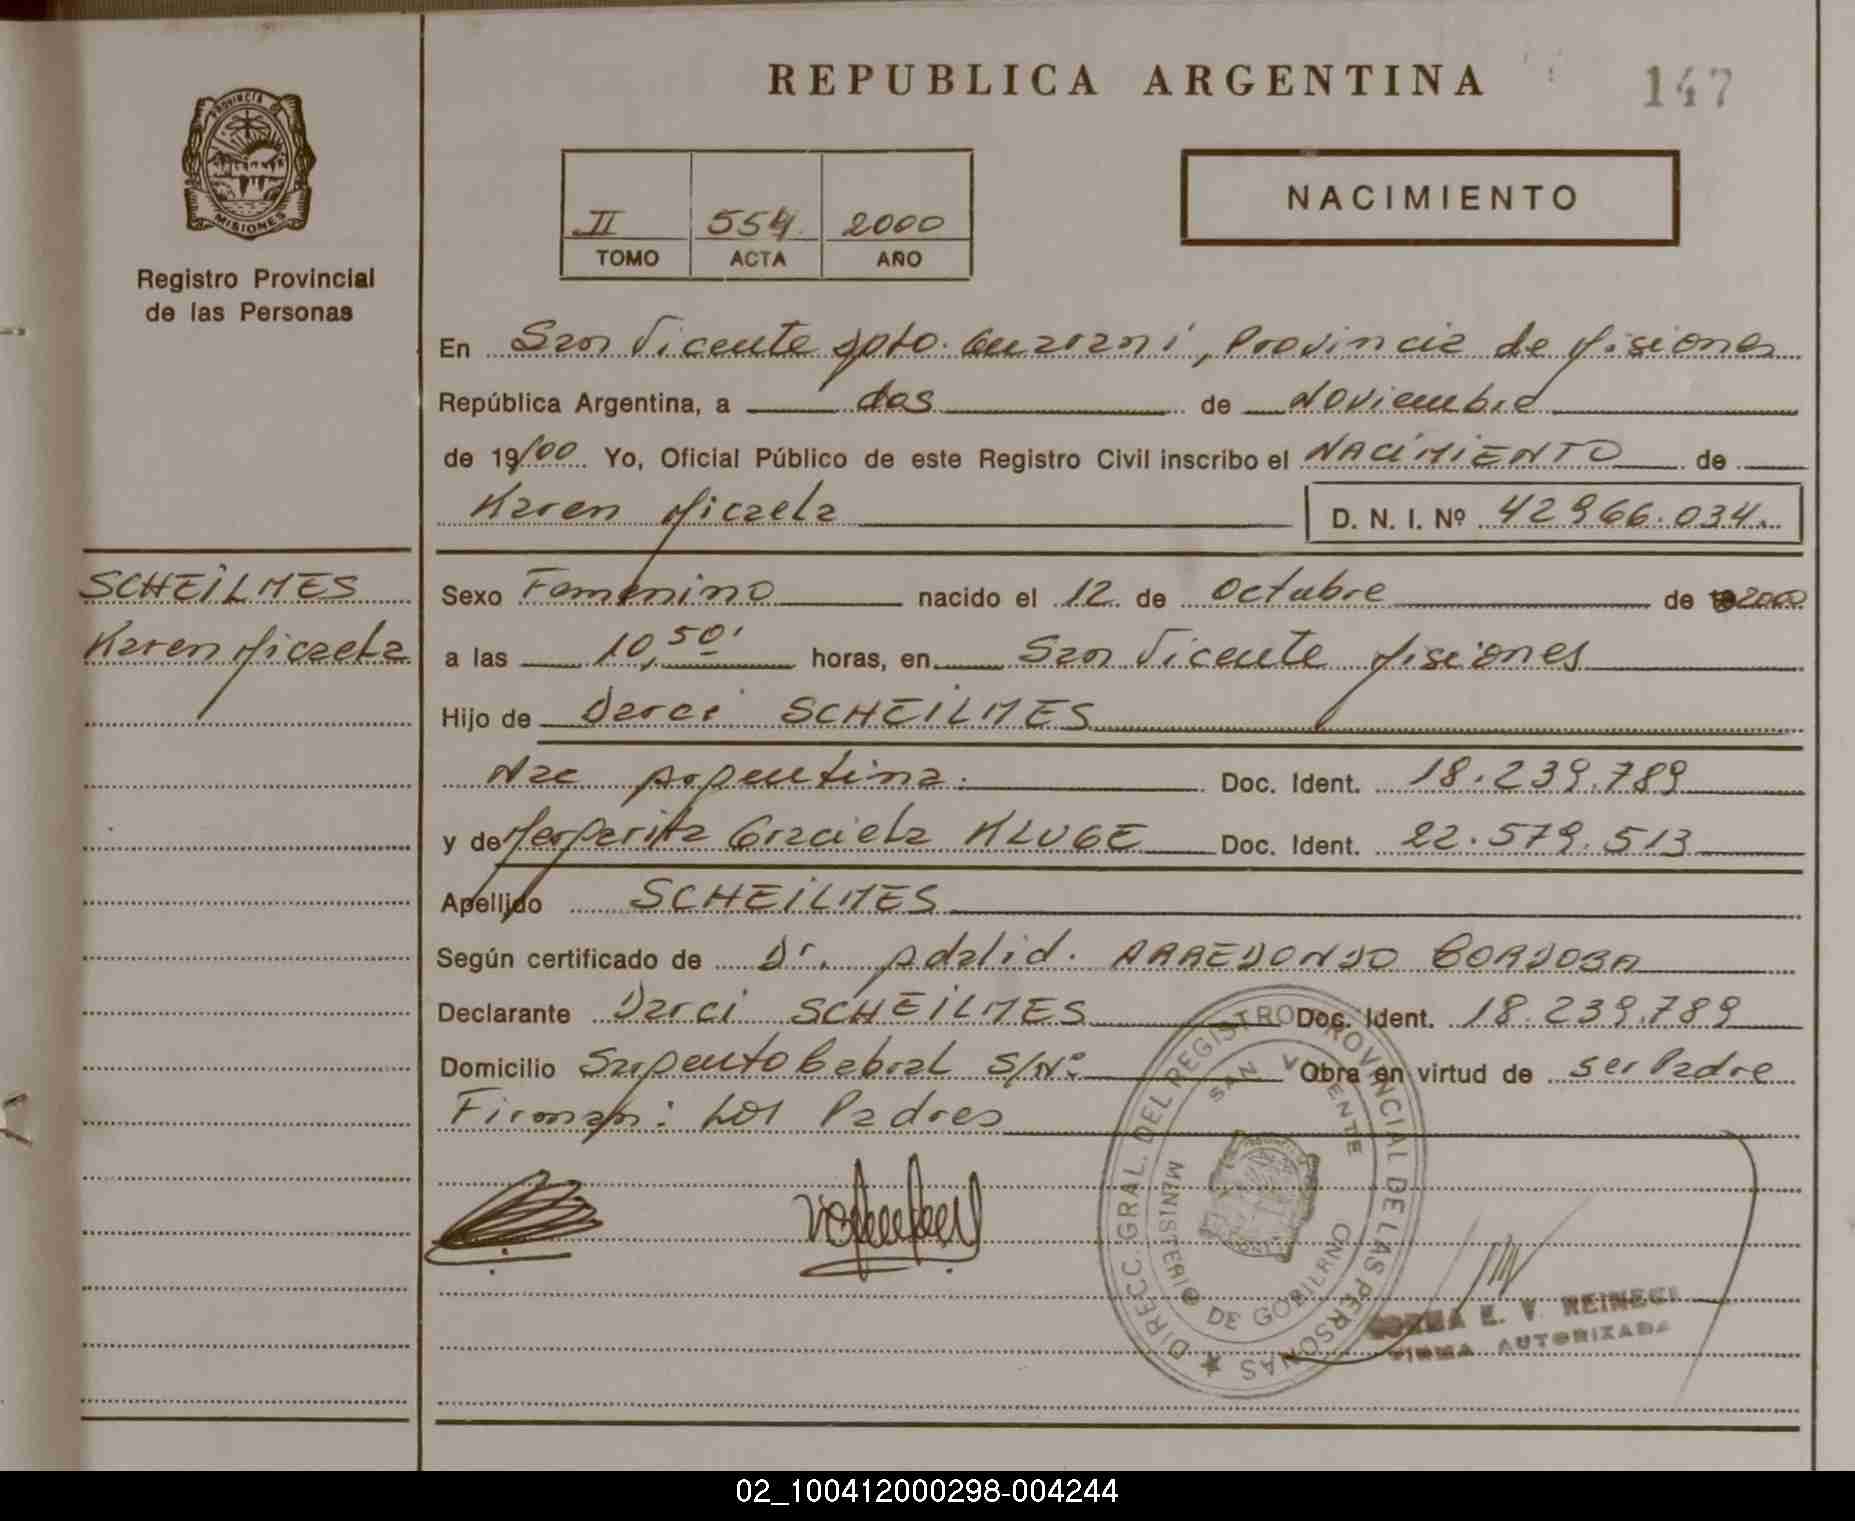 REPUBLICA ARGENTINA
147
PROVINCIA DE
MISIONES
Registro Provincial
de las Personas
NACIMIENTO
II 554. 2000
TOMO ACTA AÑO
En San Vicente Dpto. Guaraní, Provincia de Misiones
República Argentina, a dos de Noviembre
de 19/00 Yo, Oficial Público de este Registro Civil inscribo el NACIMIENTO de
Karen Micaela D. N. I. Nº 42966.034.
SCHEILMES
Karen Micaela
Sexo Femenino nacido el 12 de Octubre de 2000
a las 10,50' horas, en San Vicente Misiones
Hijo de Darci SCHEILMES
Nac Argentina. Doc. Ident. 18.239.789
y de Margarita Graciela KLUGE Doc. Ident. 22.579.513
Apellido SCHEILMES
Según certificado de Dr. Adalid. ARREDONDO CORDOBA
Declarante Darci SCHEILMES Doc. Ident. 18.239.789
Domicilio Sargento Cabral S/Nº Obra en virtud de ser Padre
Firman: Los Padres
DIRECC. GRAL. DEL REGISTRO PROVINCIAL DE LAS PERSONAS
SAN VICENTE
MINISTERIO DE GOBIERNO
NORMA E. V. REINECI
FIRMA AUTORIZADA
02_100412000298-004244